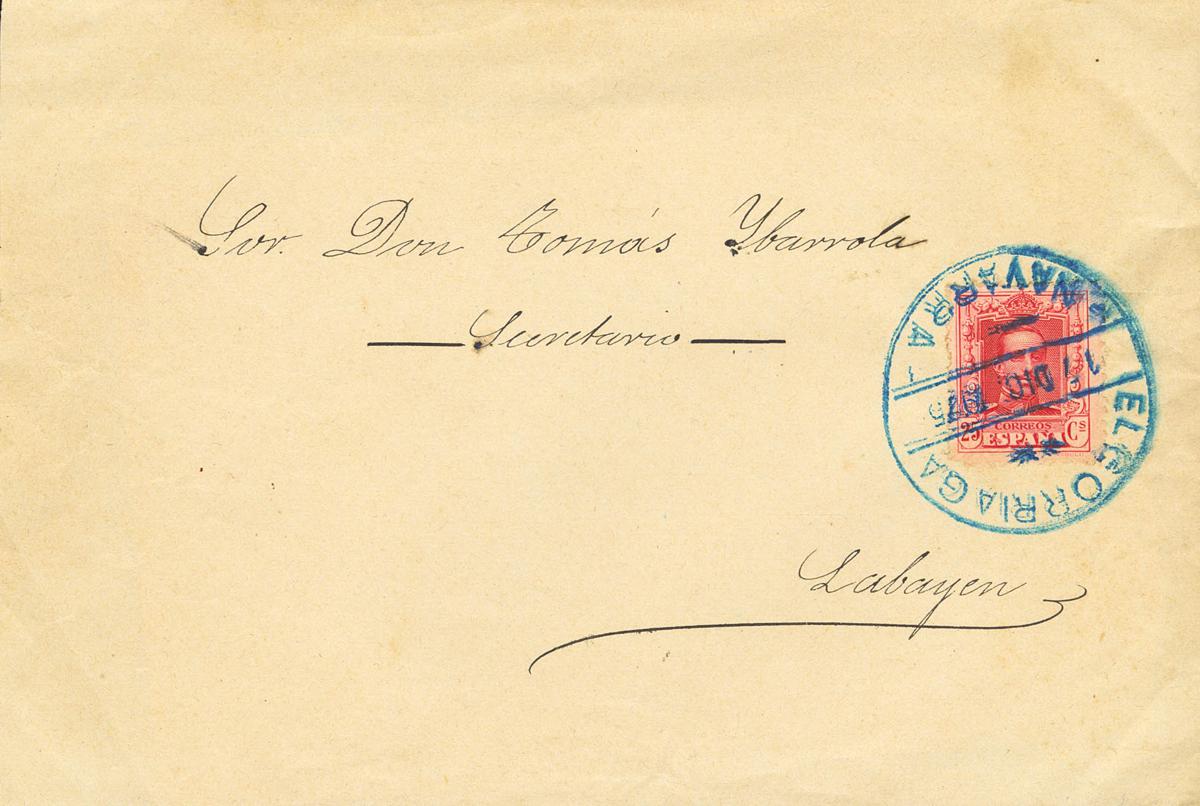 Sor. Don Tomás Ybarrola
Secretario
Labayen
ELGORRIAGA
NAVARRA
DIC.
25 Cs
CORREOS
ESPAÑA